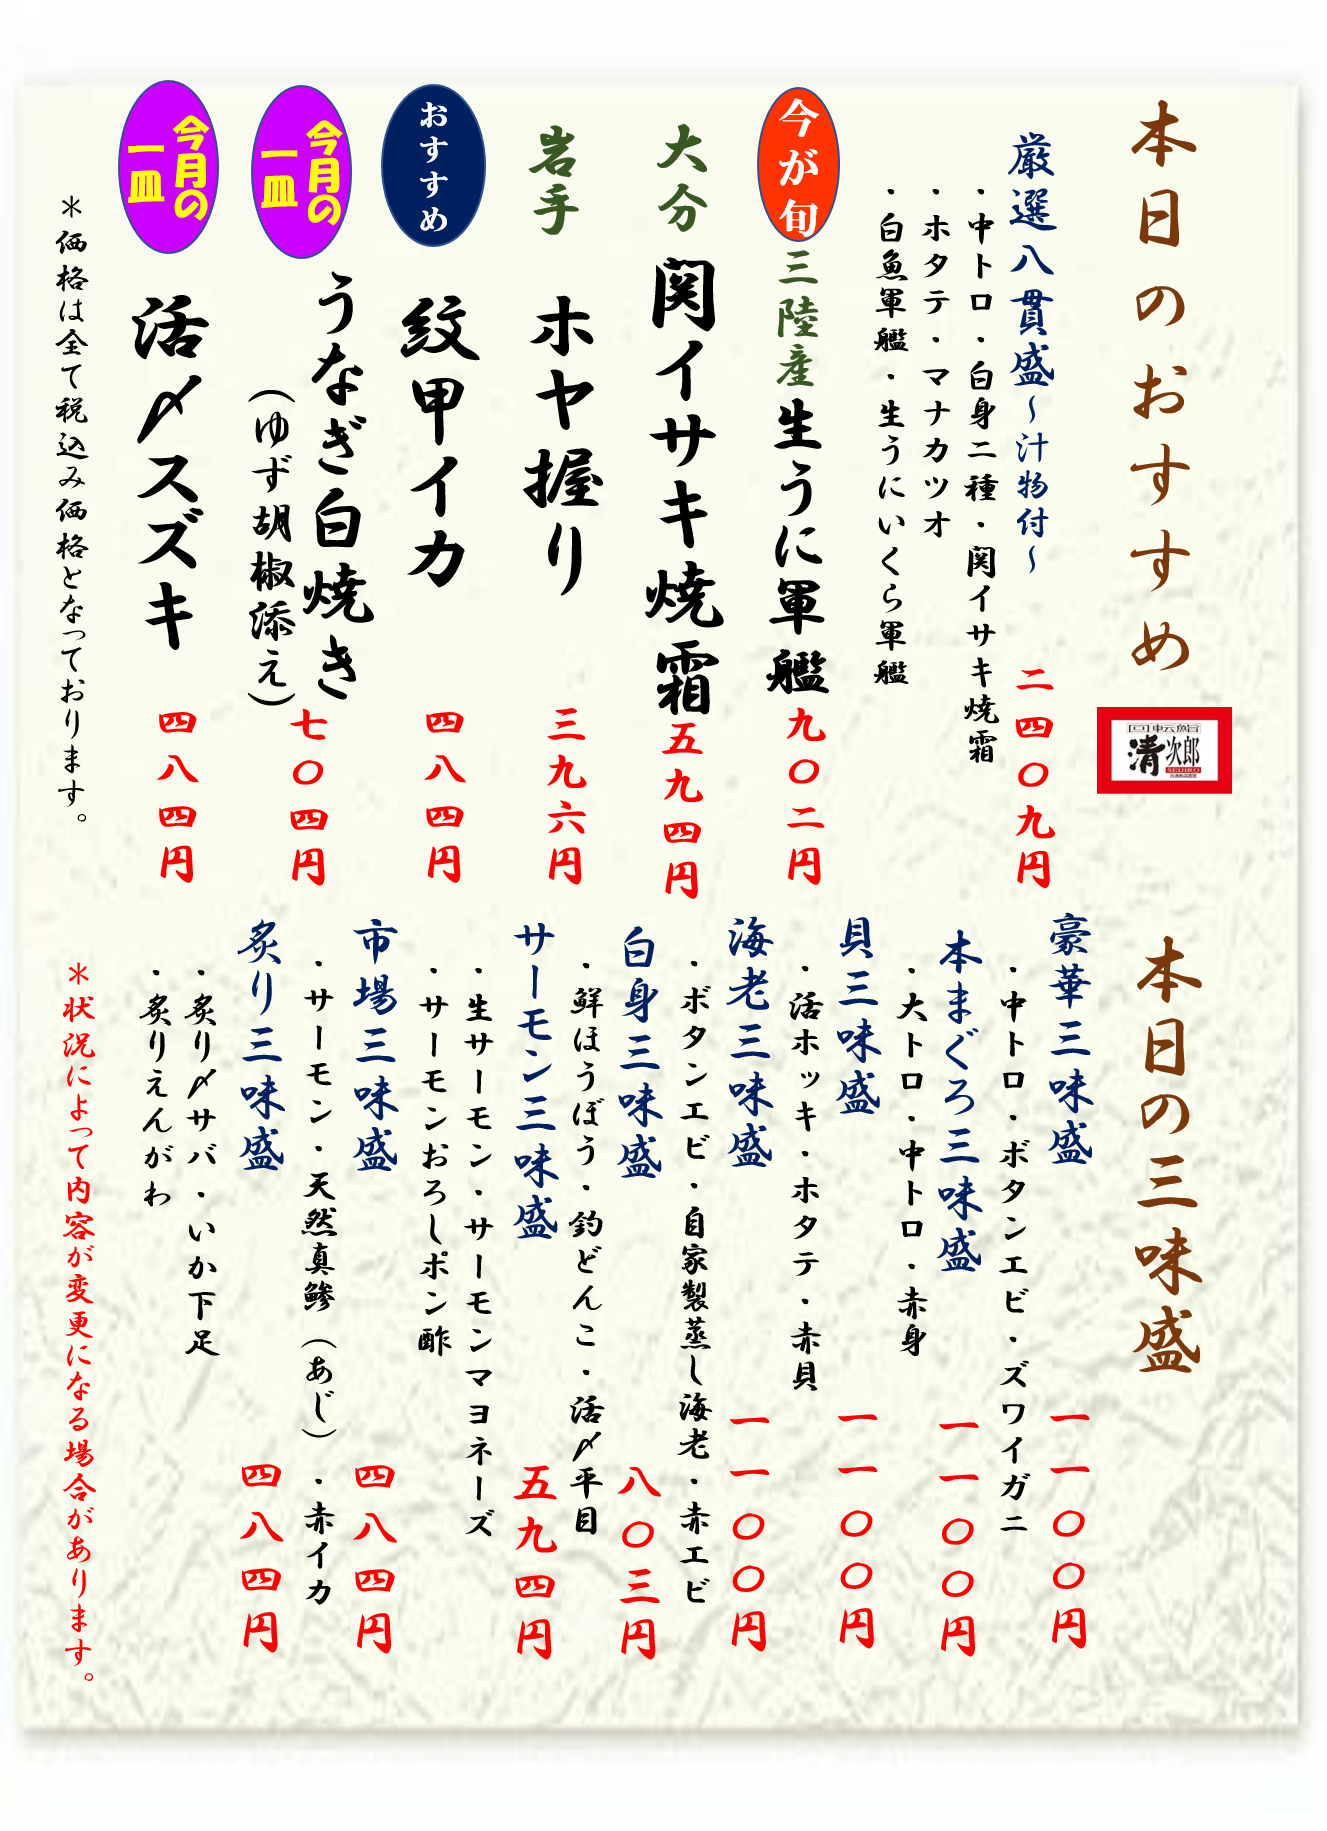 本日のおすすめ
回転鮨
清次郎
SEIJIRO
厳選八貫盛～汁物付～ 二四〇九円
・中トロ・白身二種・関イサキ焼霜
・ホタテ・マナカツオ
・白魚軍艦・生うにいくら軍艦
今が旬 三陸産 生うに軍艦 九〇二円
大分 関イサキ焼霜 五九四円
岩手 ホヤ握り 三九六円
おすすめ 紋甲イカ 四八四円
今月の
一皿
うなぎ白焼き
（ゆず胡椒添え） 七〇四円
今月の
一皿
活〆スズキ 四八四円
＊価格は全て税込み価格となっております。
本日の三味盛
豪華三味盛 一一〇〇円
・中トロ・ボタンエビ・ズワイガニ
本まぐろ三味盛 一一〇〇円
・大トロ・中トロ・赤身
貝三味盛 一一〇〇円
・活ホッキ・ホタテ・赤貝
海老三味盛 一一〇〇円
・ボタンエビ・自家製蒸し海老・赤エビ
白身三味盛 八〇三円
・鮮ほうぼう・釣どんこ・活〆平目
サーモン三味盛 五九四円
・生サーモン・サーモンマヨネーズ
・サーモンおろしポン酢
市場三味盛 四八四円
・サーモン・天然真鯵（あじ）・赤イカ
炙り三味盛 四八四円
・炙り〆サバ・いか下足
・炙りえんがわ
＊状況によって内容が変更になる場合があります。